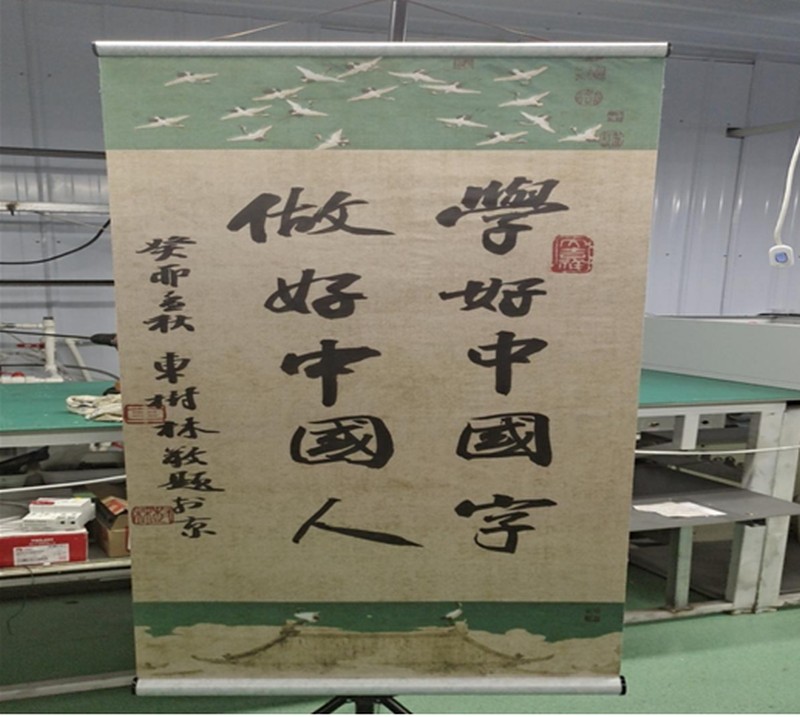 學好中國字
做好中國人
癸卯孟秋 東樹林敬題於京